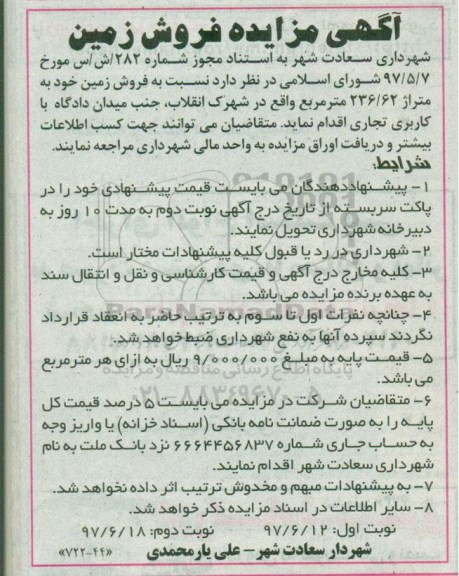 آگهی مزایده فروش زمین
شهرداری سعادت شهر به استناد مجوز شماره ۲۸۲/ش/س مورخ
۹۷/۵/۷ شورای اسلامی در نظر دارد نسبت به فروش زمین خود به
متراژ ۲۳۶/۶۲ مترمربع واقع در شهرک انقلاب، جنب میدان دادگاه با
کاربری تجاری اقدام نماید. متقاضیان می توانند جهت کسب اطلاعات
بیشتر و دریافت اوراق مزایده به واحد مالی شهرداری مراجعه نمایند.
شرایط:
۱- پیشنهاددهندگان می بایست قیمت پیشنهادی خود را در
پاکت سربسته از تاریخ درج آگهی نوبت دوم به مدت ۱۰ روز به
دبیرخانه شهرداری تحویل نمایند.
۲- شهرداری در رد یا قبول کلیه پیشنهادات مختار است.
۳- کلیه مخارج درج آگهی و قیمت کارشناسی و نقل و انتقال سند
به عهده برنده مزایده می باشد.
۴- چنانچه نفرات اول تا سوم به ترتیب حاضر به انعقاد قرارداد
نگردند سپرده آنها به نفع شهرداری ضبط خواهد شد.
۵- قیمت پایه به مبلغ ۹/۰۰۰/۰۰۰ ریال به ازای هر مترمربع
می باشد.
۶- متقاضیان شرکت در مزایده می بایست ۵ درصد قیمت کل
پایه را به صورت ضمانت نامه بانکی (اسناد خزانه) یا واریز وجه
به حساب جاری شماره ۶۶۶۴۴۵۶۸۳۷ نزد بانک ملت به نام
شهرداری سعادت شهر اقدام نمایند.
۷- به پیشنهادات مبهم و مخدوش ترتیب اثر داده نخواهد شد.
۸- سایر اطلاعات در اسناد مزایده ذکر خواهد شد.
نوبت اول: ۹۷/۶/۱۲ نوبت دوم: ۹۷/۶/۱۸
شهردار سعادت شهر – علی یارمحمدی «۷۲۲-۴۴»
پایگاه اطلاع رسانی مناقصه و مزایده